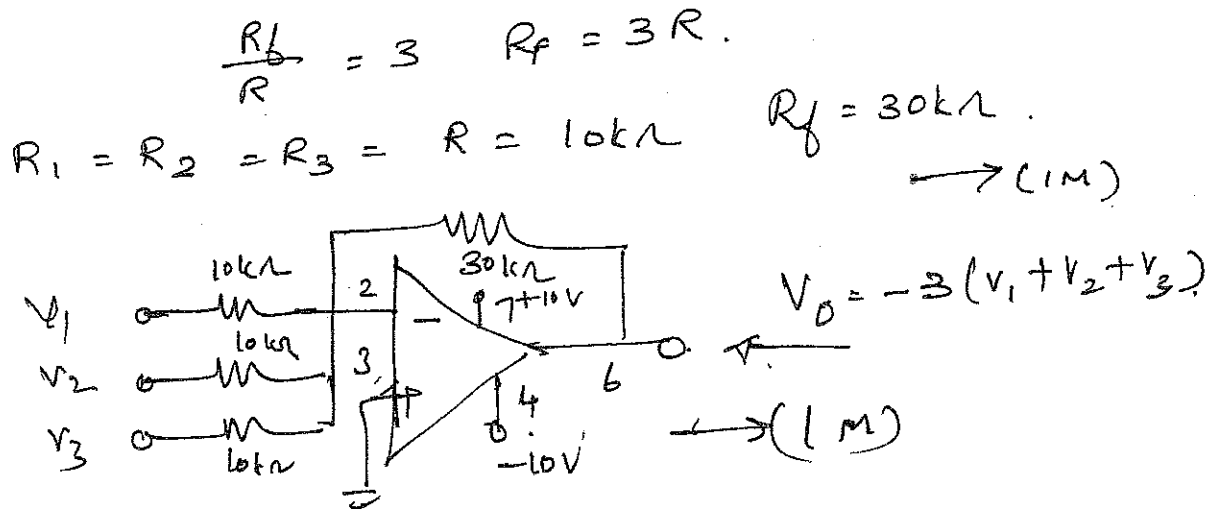 Rf/R = 3 Rf = 3R.
R1 = R2 = R3 = R = 10kΩ Rf = 30kΩ.
→ (1M)
10kΩ 30kΩ
V1 2 - 7+10V V0 = -3(V1+V2+V3)
10kΩ
V2 3 + 6
V3 4 → (1M)
10kΩ -10V